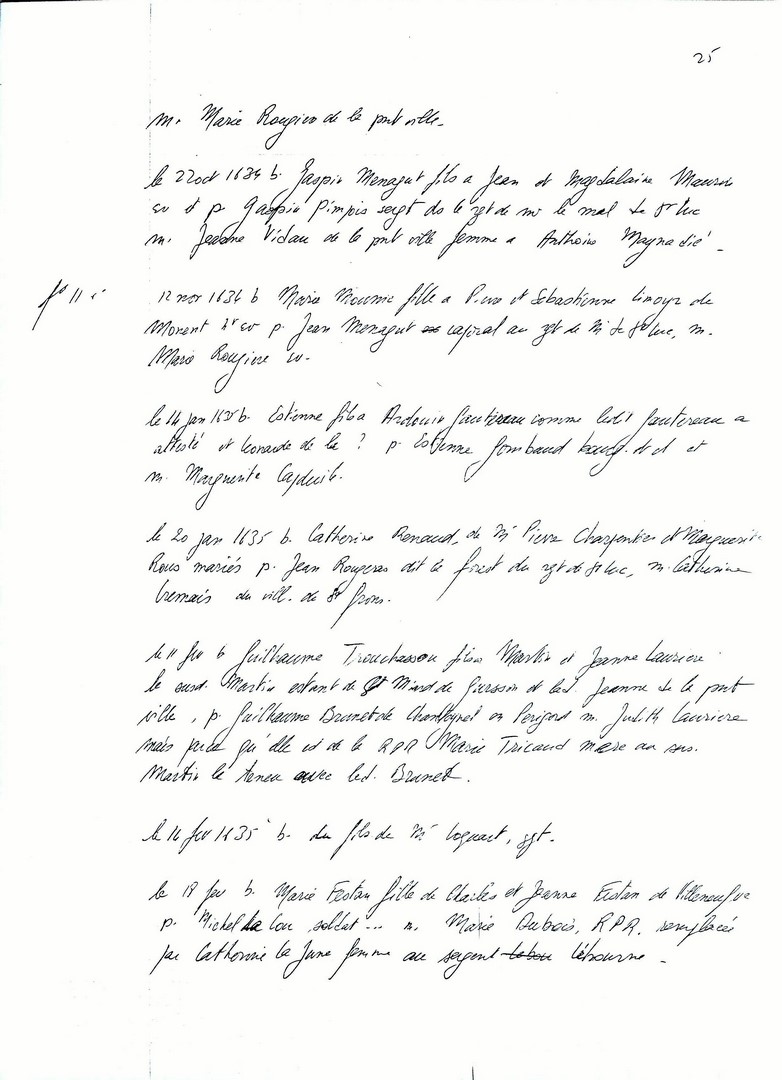 25
m. Marie Rougier de la pnt ville.
le 22 oct 1634 b. Gaspin Menagut fils a Jean et Magdalaine
et p. Gaspin Pimpis sergt de le rgt de mr le mal de St Luc
m. Jeanne Vidau de la pnt ville femme a Anthoine Magnadié.
fo 11
12 nov 1634 b Marie fille a et Sebastienne de
p. Jean Menagut capiral au rgt de Mr de St Luc, m.
Marie Rougiere
le 14 jan 1635 b. Estienne fils a Ardouin Gautereau comme ledit Gautereau a
attesté et leonarde de la ? p. Estienne Gombaud bourg. et
m. Marguerite
le 20 jan 1635 b. Catherine Renaud, de Mr Pierre Charpentier et Marguerite
Rous mariés p. Jean Rougeras dit le forest du rgt de St Luc, m. Catherine
Cremais du vill. de St frons.
le 11 fev b Guilhaume Trouchassou fils a Martin et Jeanne Lauriere
le susd. Martin estant de St de Gursson et lad. Jeanne de la pnt
ville, p. Guilhaume Brunet de en Perigord m. Judith Lauriere
mais parce qu'elle est de la RPR Marie Tricaud mere au sus.
Martin le teneu avec led. Brunet.
le 14 fev 1635 b. du fils de Mr Loguart, sgt.
le 18 fev b. Marie Festan fille de Charles et Jeanne Festan de Villeneufve
p. Michel La Cou, soldat... m. Marie Dubois, RPR, remplacés
par Catherine la June femme au sergent Lébourne.